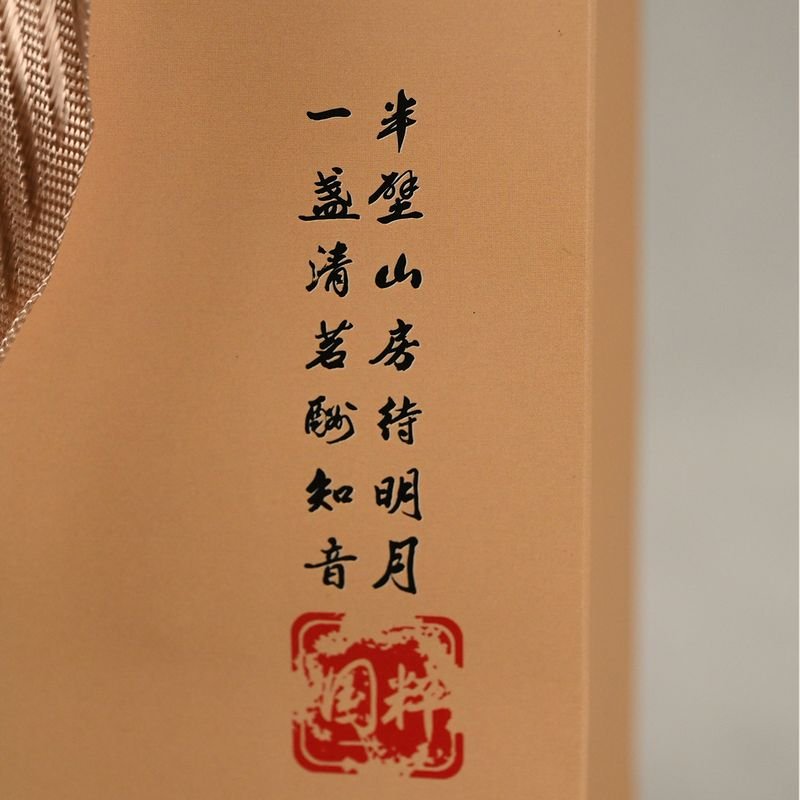 半壁山房待明月
一盏清茗酬知音
国粹